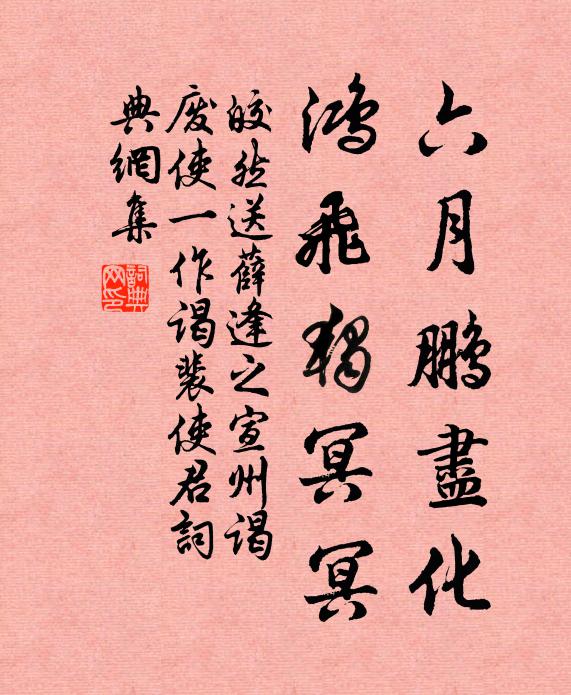 六月鵬盡化
鴻飛獨冥冥
皎然送薛逢之宣州謁
废使一作謁裴使君詞
典網集
詞典网印